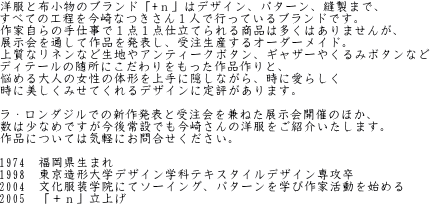 洋服と布小物のブランド「+n」はデザイン、パターン、縫製まで、
すべての工程を今崎なつきさん1人で行っているブランドです。
作家自らの手仕事で1点1点仕立てられる商品は多くはありませんが、
展示会を通して作品を発表し、受注生産するオーダーメイド。
上質なリネンなど生地やアンティークボタン、ギャザーやくるみボタンなど
ディテールの随所にこだわりをもった作品作りと、
悩める大人の女性の体形を上手に隠しながら、時に愛らしく
時に美しくみせてくれるデザインに定評があります。
ラ・ロンダジルでの新作発表と受注会を兼ねた展示会開催のほか、
数は少なめですが今後常設でも今崎さんの洋服をご紹介いたします。
作品については気軽にお問合せください。
1974 福岡県生まれ
1998 東京造形大学デザイン学科テキスタイルデザイン専攻卒
2004 文化服装学院にてソーイング、パターンを学び作家活動を始める
2005 「+n」立上げ